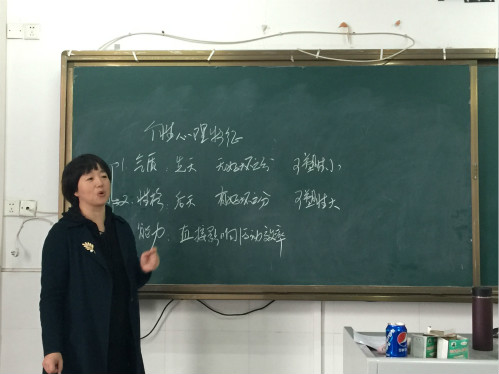 个性心理特征
1. 气质: 先天 无好坏之分 可塑性小
2. 性格: 后天 有好坏之分 可塑性大
能力: 直接影响活动效率
pepsi